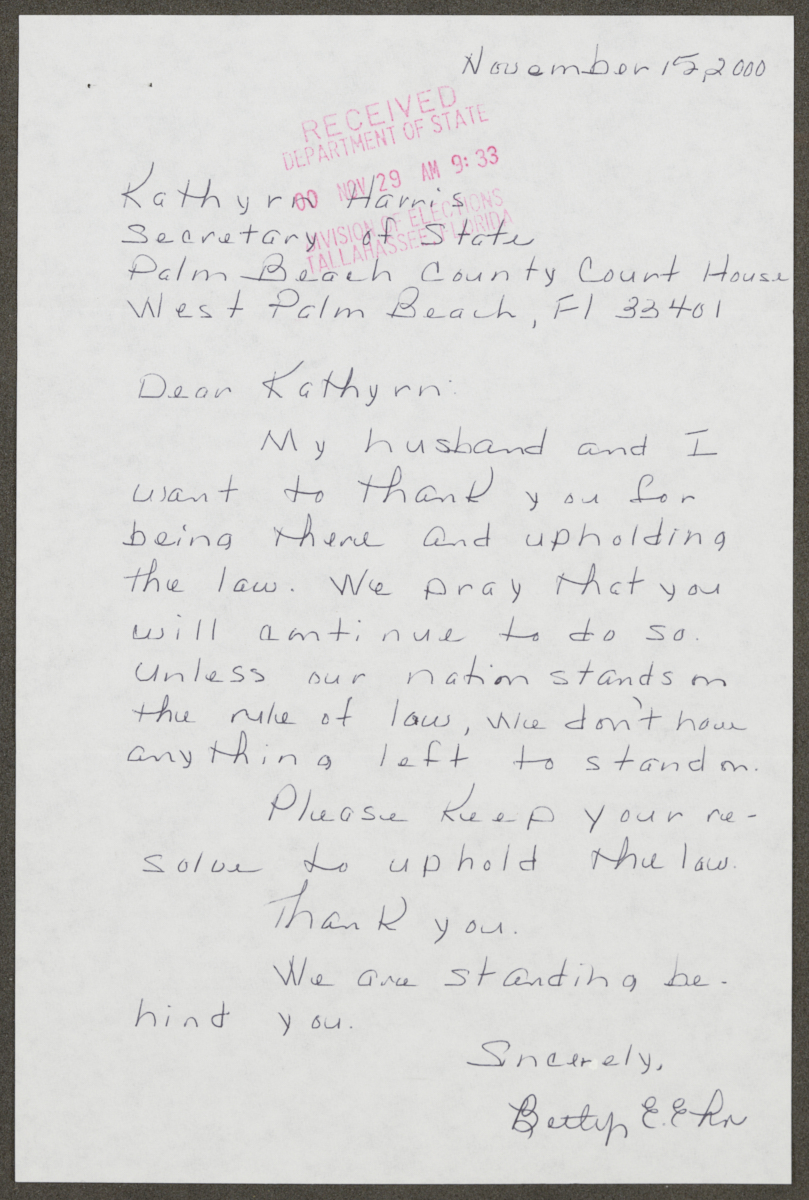 November 15, 2000
RECEIVED
DEPARTMENT OF STATE
00 NOV 29 AM 9:33
DIVISION OF ELECTIONS
TALLAHASSEE FLORIDA
Kathyrn Harris
Secretary of State
Palm Beach County Court House
West Palm Beach, Fl 33401
Dear Kathyrn:
My husband and I
want to thank you for
being there and upholding
the law. We pray that you
will continue to do so.
Unless our nation stands on
the rule of law, we don't have
anything left to stand on.
Please keep your re-
solve to uphold the law.
Thank you.
We are standing be-
hind you.
Sincerely,
Betty E.